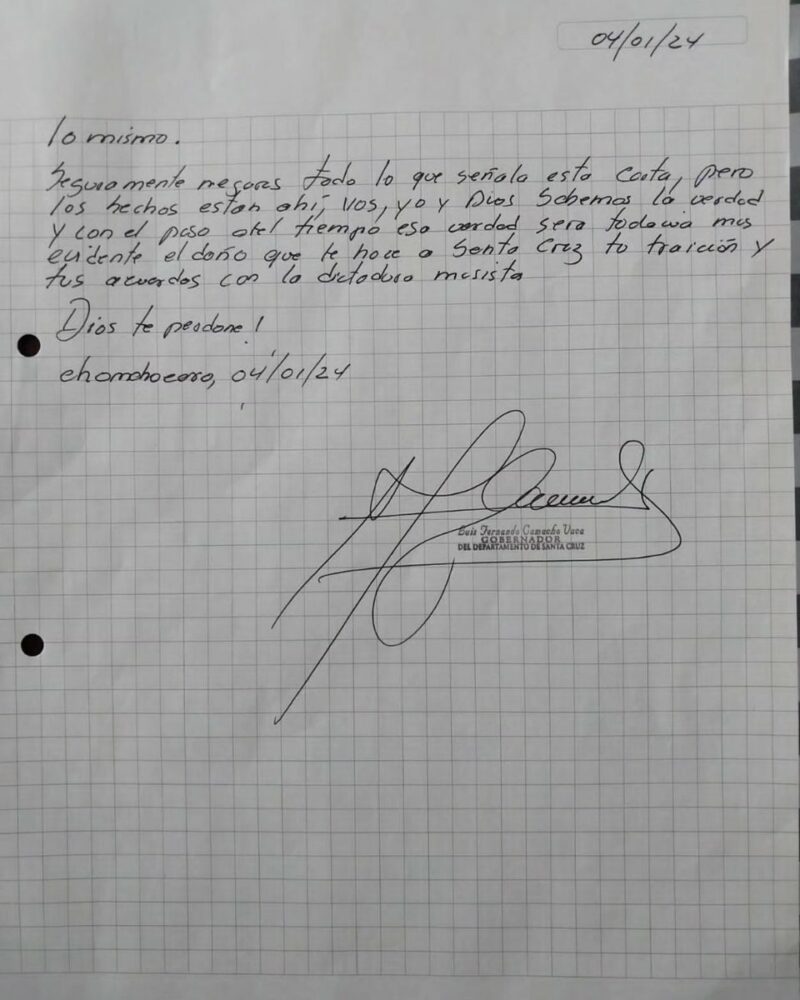 04/01/24
lo mismo.
Seguramente negaras todo lo que señala esta carta, pero
los hechos estan ahi, vos, yo y Dios sabemos la verdad
y con el paso del tiempo esa verdad sera todavia mas
evidente el daño que le hace a Santa Cruz tu traición y
tus acuerdos con la dictadura masista
Dios te perdone!
Chonchocoro, 04/01/24
Luis Fernando Camacho Vaca
GOBERNADOR
DEL DEPARTAMENTO DE SANTA CRUZ